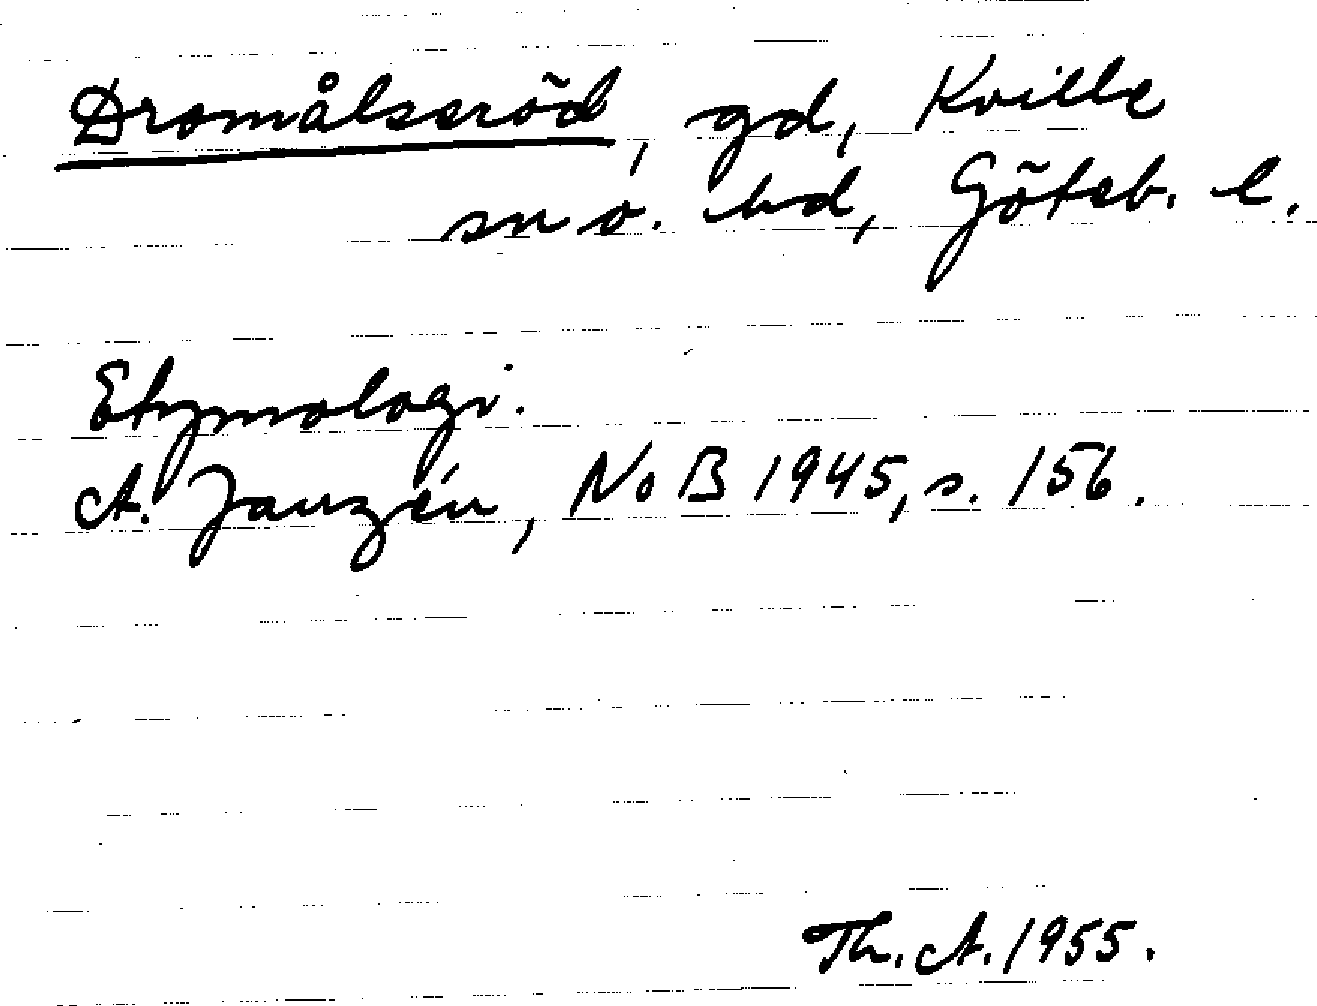 Dromålseröd, gd, Kville
sn o. hd, Göteb. l.
Etymologi.
A. Janzén, NoB 1945, s. 156.
Th. A. 1955.